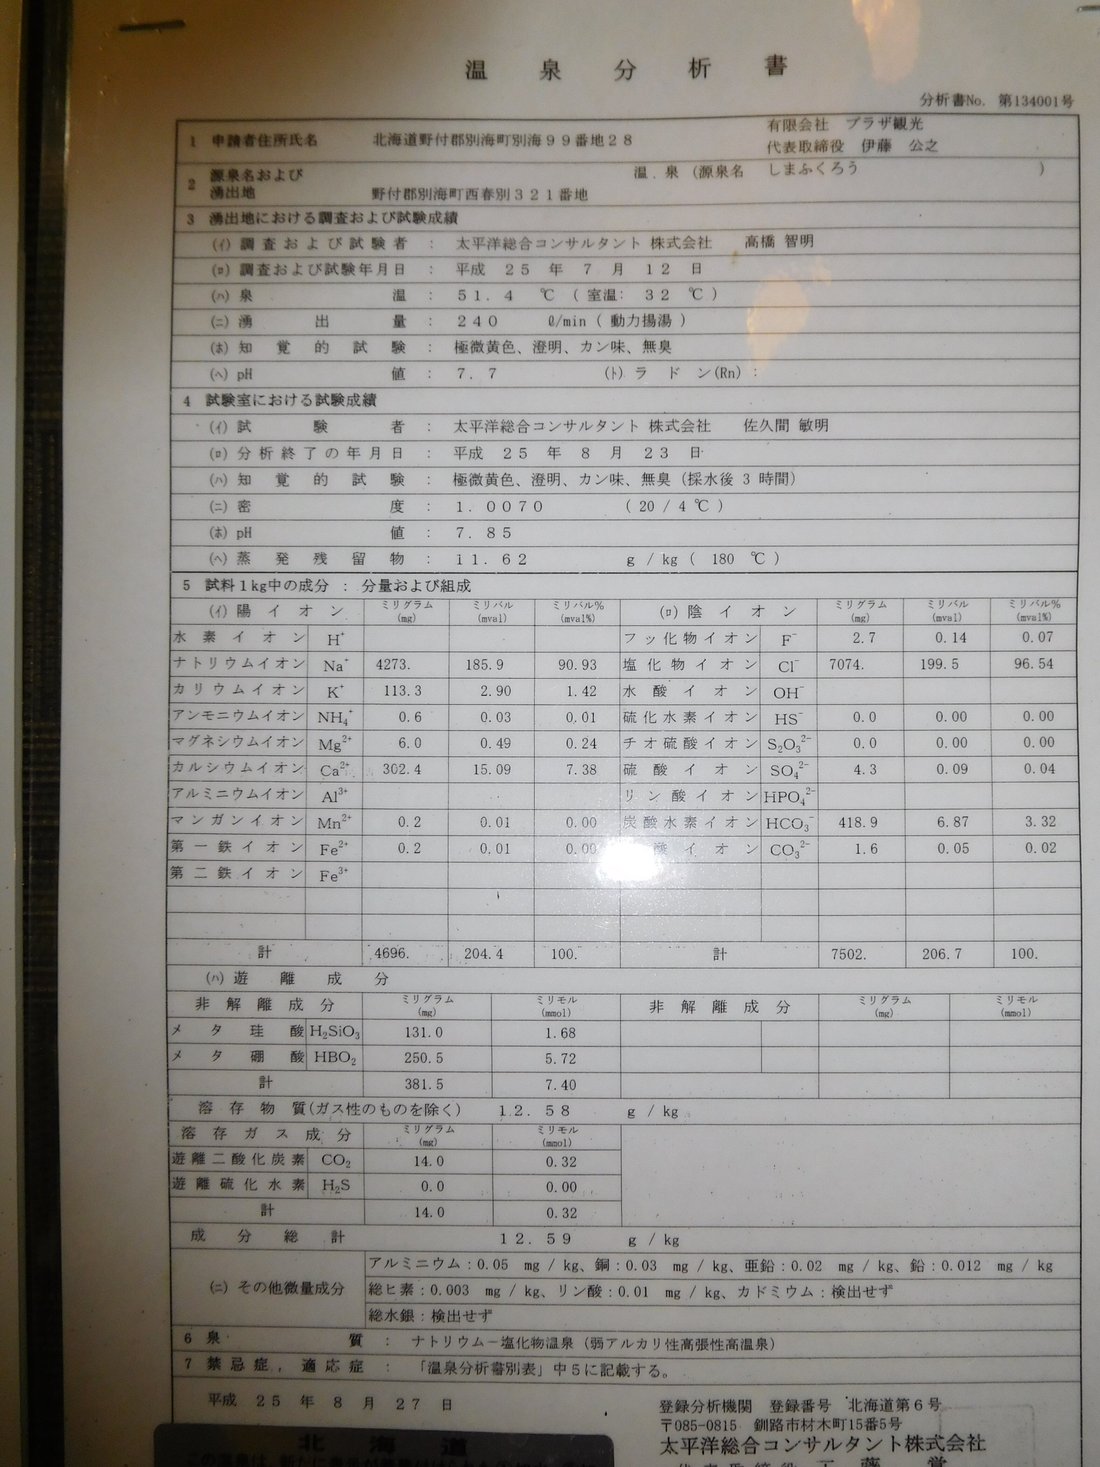 温泉分析書
分析書No. 第134001号
1 申請者住所氏名 北海道野付郡別海町別海９９番地２８ 有限会社 プラザ観光
代表取締役 伊藤 公之
2 源泉名および湧出地 温 泉 (源泉名 しまふくろう )
野付郡別海町西春別３２１番地
3 湧出地における調査および試験成績
(ｲ) 調査および試験者 : 太平洋総合コンサルタント 株式会社 高橋 智明
(ﾛ) 調査および試験年月日 : 平成 ２５ 年 ７ 月 １２ 日
(ﾊ) 泉温 : ５１．４ ℃ ( 室温: ３２ ℃ )
(ﾆ) 湧出量 : ２４０ ℓ/min ( 動力揚湯 )
(ﾎ) 知覚的試験 : 極微黄色、澄明、カン味、無臭
(ﾍ) pH値 : ７．７ (ﾄ) ラドン(Rn) :
4 試験室における試験成績
(ｲ) 試験者 : 太平洋総合コンサルタント 株式会社 佐久間 敏明
(ﾛ) 分析終了の年月日 : 平成 ２５ 年 ８ 月 ２３ 日
(ﾊ) 知覚的試験 : 極微黄色、澄明、カン味、無臭 (採水後 3 時間)
(ﾆ) 密度 : １．００７０ ( 20 / 4 ℃ )
(ﾎ) pH値 : ７．８５
(ﾍ) 蒸発残留物 : １１．６２ g / kg ( 180 ℃ )
5 試料１kg中の成分 : 分量および組成
(ｲ) 陽イオン ミリグラム (mg) ミリバル (mval) ミリバル% (mval%) (ﾛ) 陰イオン ミリグラム (mg) ミリバル (mval) ミリバル% (mval%)
水素イオン H⁺ フッ化物イオン F⁻ 2.7 0.14 0.07
ナトリウムイオン Na⁺ 4273. 185.9 90.93 塩化物イオン Cl⁻ 7074. 199.5 96.54
カリウムイオン K⁺ 113.3 2.90 1.42 水酸イオン OH⁻
アンモニウムイオン NH₄⁺ 0.6 0.03 0.01 硫化水素イオン HS⁻ 0.0 0.00 0.00
マグネシウムイオン Mg²⁺ 6.0 0.49 0.24 チオ硫酸イオン S₂O₃²⁻ 0.0 0.00 0.00
カルシウムイオン Ca²⁺ 302.4 15.09 7.38 硫酸イオン SO₄²⁻ 4.3 0.09 0.04
アルミニウムイオン Al³⁺ リン酸イオン HPO₄²⁻
マンガンイオン Mn²⁺ 0.2 0.01 0.00 炭酸水素イオン HCO₃⁻ 418.9 6.87 3.32
第一鉄イオン Fe²⁺ 0.2 0.01 0.00 酸イオン CO₃²⁻ 1.6 0.05 0.02
第二鉄イオン Fe³⁺
計 4696. 204.4 100. 計 7502. 206.7 100.
(ﾊ) 遊離成分
非解離成分 ミリグラム (mg) ミリモル (mmol) 非解離成分 ミリグラム (mg) ミリモル (mmol)
メタ珪酸 H₂SiO₃ 131.0 1.68
メタ硼酸 HBO₂ 250.5 5.72
計 381.5 7.40
溶存物質(ガス性のものを除く) １２．５８ g / kg
溶存ガス成分 ミリグラム (mg) ミリモル (mmol)
遊離二酸化炭素 CO₂ 14.0 0.32
遊離硫化水素 H₂S 0.0 0.00
計 14.0 0.32
成分総計 １２．５９ g / kg
(ﾆ) その他微量成分 アルミニウム:0.05 mg / kg、銅:0.03 mg / kg、亜鉛:0.02 mg / kg、鉛:0.012 mg / kg
総ヒ素:0.003 mg / kg、リン酸:0.01 mg / kg、カドミウム:検出せず
総水銀:検出せず
6 泉質 : ナトリウム－塩化物温泉 (弱アルカリ性高張性高温泉)
7 禁忌症，適応症 : 「温泉分析書別表」中５に記載する。
平成 ２５ 年 ８ 月 ２７ 日
登録分析機関 登録番号 北海道第６号
〒085-0815 釧路市材木町15番5号
太平洋総合コンサルタント株式会社
北海道